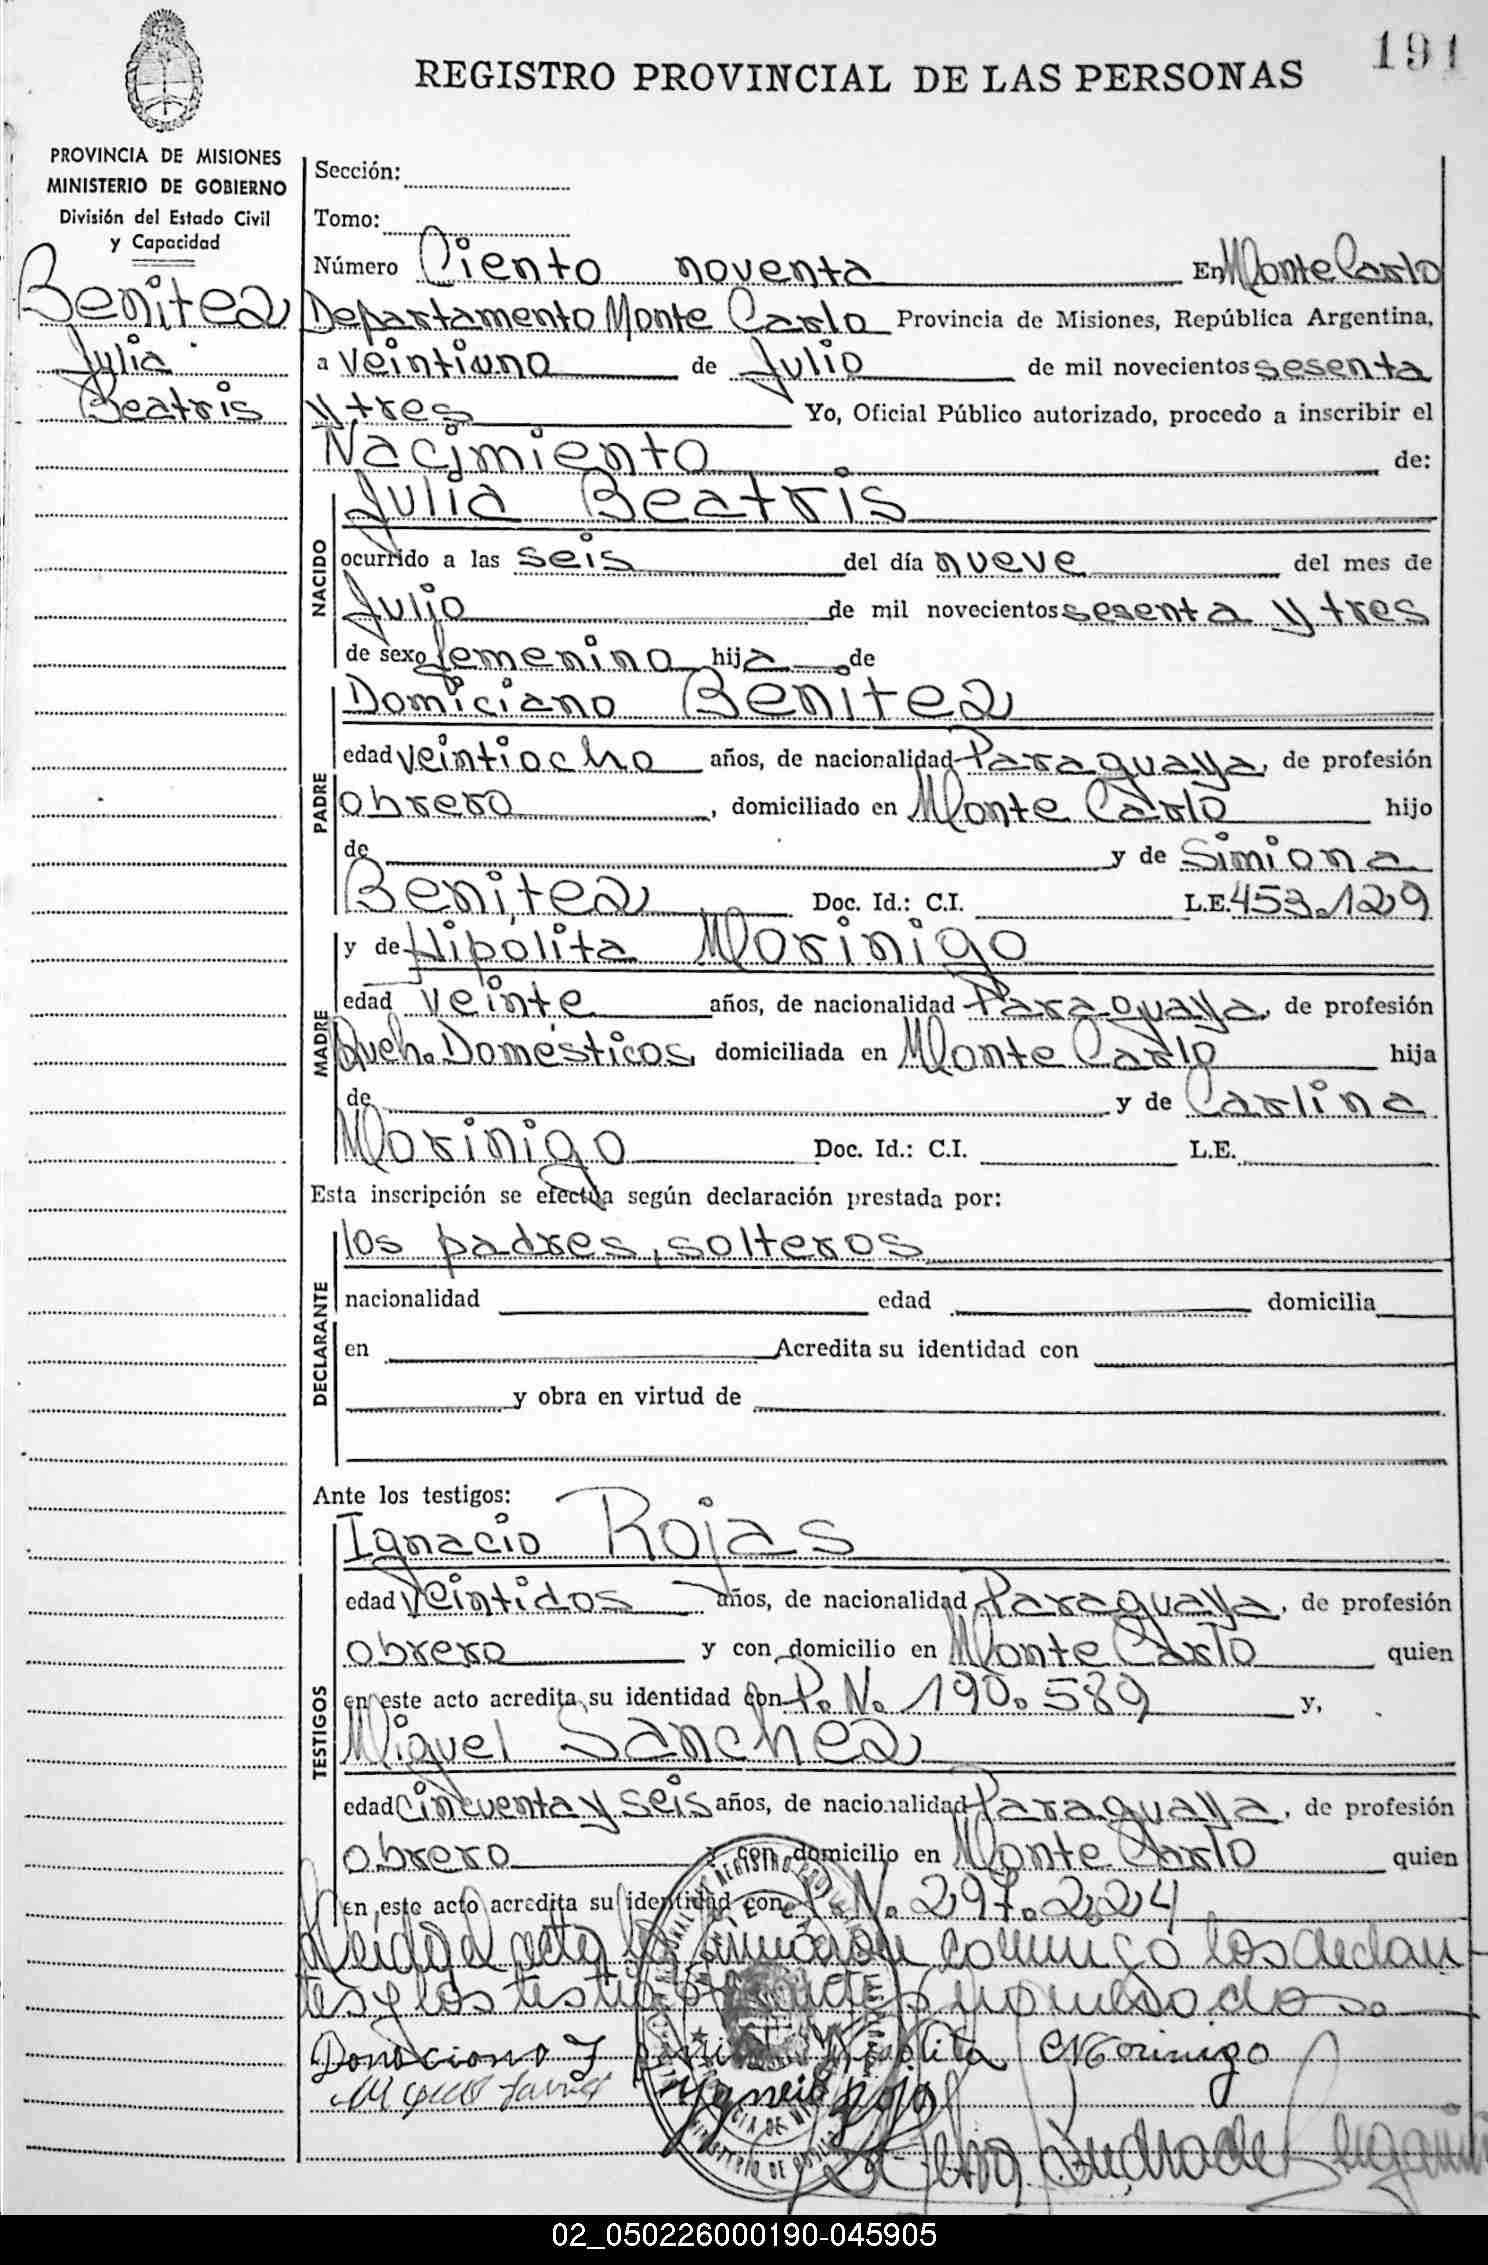 191
REGISTRO PROVINCIAL DE LAS PERSONAS
PROVINCIA DE MISIONES
MINISTERIO DE GOBIERNO
División del Estado Civil
y Capacidad
Benitez
Julia
Beatris
Sección:
Tomo:
Número Ciento noventa En Monte Carlo
Departamento Monte Carlo Provincia de Misiones, República Argentina,
a veintiuno de Julio de mil novecientos sesenta
y tres Yo, Oficial Público autorizado, procedo a inscribir el
Nacimiento de:
NACIDO
Julia Beatris
ocurrido a las seis del día nueve del mes de
Julio de mil novecientos sesenta y tres
de sexo femenino hija de
PADRE
Domiciano Benitez
edad veintiocho años, de nacionalidad Paraguaya, de profesión
obrero, domiciliado en Monte Carlo hijo
de y de Simiona
Benitez Doc. Id.: C.I. L.E. 453.129
MADRE
y de Hipólita Morinigo
edad veinte años, de nacionalidad Paraguaya, de profesión
Queh. Domésticos, domiciliada en Monte Carlo hija
de y de Carlina
Morinigo Doc. Id.: C.I. L.E.
Esta inscripción se efectúa según declaración prestada por:
DECLARANTE
los padres, solteros
nacionalidad edad domicilia
en Acredita su identidad con
y obra en virtud de
Ante los testigos:
TESTIGOS
Ignacio Rojas
edad veintidos años, de nacionalidad Paraguaya, de profesión
obrero y con domicilio en Monte Carlo quien
en este acto acredita su identidad con P. N. 190.589 y,
Miguel Sanchez
edad cincuenta y seis años, de nacionalidad Paraguaya, de profesión
obrero y con domicilio en Monte Carlo quien
en este acto acredita su identidad con P. N. 297.224
Leida el acta la firmaron conmigo los declaran
tes y los testigos antes nombrados.
Hipolita Morinigo
Ygnacio Rojas
02_050226000190-045905